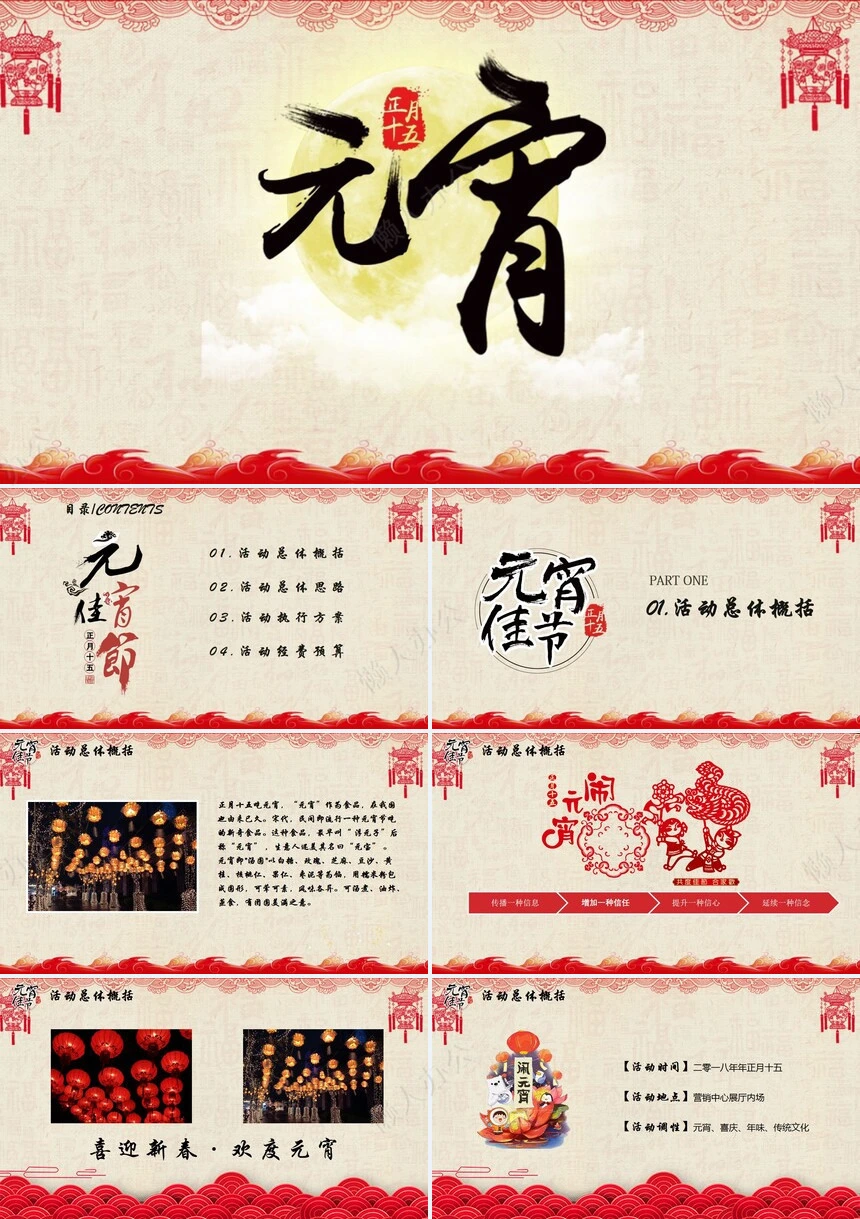 元宵
正月
十五
目录/CONTENTS
元宵佳節
正月十五
01.活动总体概括
02.活动总体思路
03.活动执行方案
04.活动经费预算
元宵
佳节
正月
十五
PART ONE
01.活动总体概括
元宵
佳节
活动总体概括
正月十五吃元宵，“元宵”作为食品，在我国
也由来已久。宋代，民间即流行一种元宵节吃
的新奇食品。这种食品，最早叫“浮元子”后
称“元宵”，生意人还美其名曰“元宝”。
元宵即“汤圆”以白糖、玫瑰、芝麻、豆沙、黄
桂、核桃仁、果仁、枣泥等为馅，用糯米粉包
成圆形，可荤可素，风味各异。可汤煮、油炸、
蒸食，有团圆美满之意。
元宵
佳节
活动总体概括
正月十五
闹元宵
共度佳节 合家歡
传播一种信息
增加一种信任
提升一种信心
延续一种信念
元宵
佳节
活动总体概括
喜迎新春·欢度元宵
元宵
佳节
活动总体概括
闹元宵
【活动时间】二零一八年年正月十五
【活动地点】营销中心展厅内场
【活动调性】元宵、喜庆、年味、传统文化